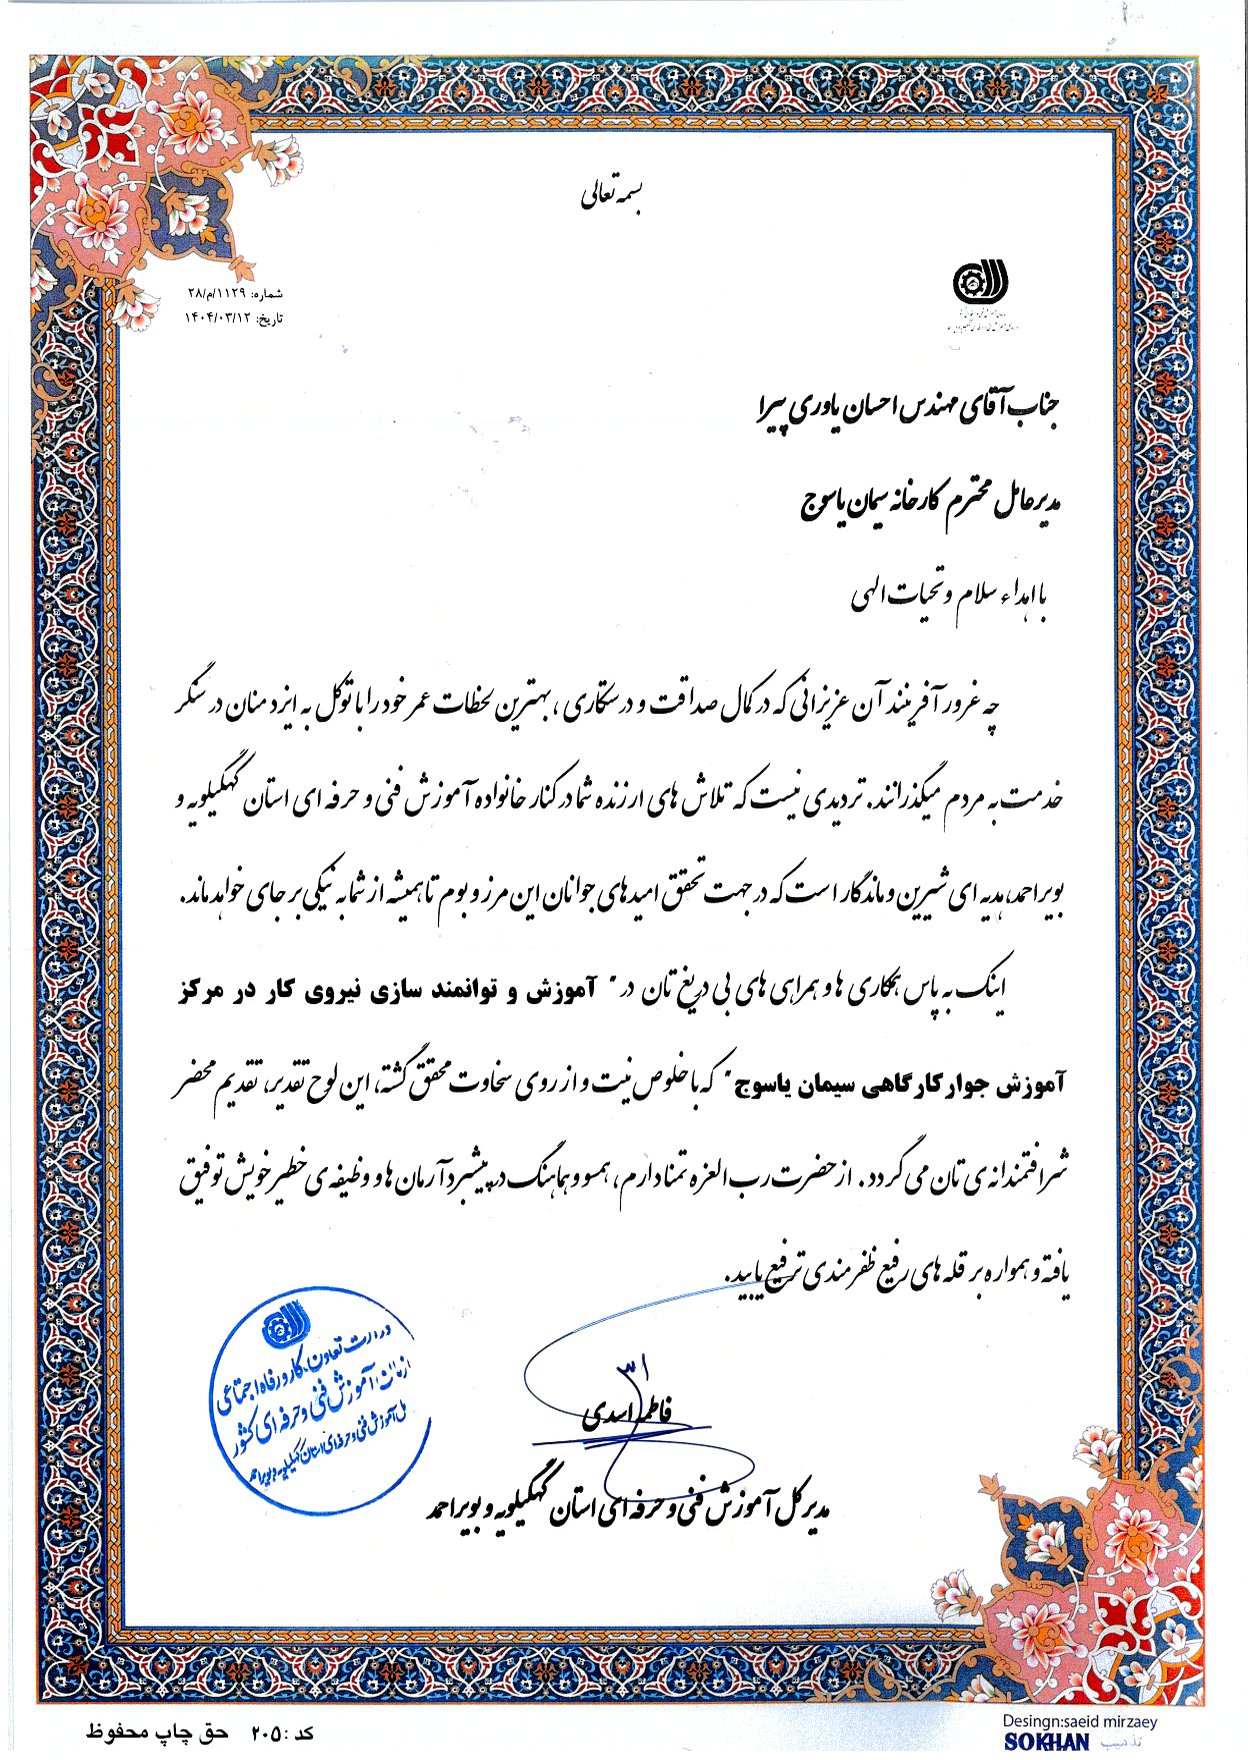 بسمه تعالی
شماره: ۲۸/م/۱۱۲۹
تاریخ: ۱۴۰۴/۰۳/۱۲
جناب آقای مهندس احسان یاوری پیرا
مدیرعامل محترم کارخانه سیمان یاسوج
با اهداء سلام و تحیات الهی
چه غرور آفرینند آن عزیزانی که در کمال صداقت و درستکاری ، بهترین لحظات عمر خود را با توکل به ایزد منان در سنگر
خدمت به مردم میگذرانند. تردیدی نیست که تلاش های ارزنده شما در کنار خانواده آموزش فنی و حرفه ای استان کهگیلویه و
بویراحمد، هدیه ای شیرین و ماندگار است که در جهت تحقق امیدهای جوانان این مرز و بوم تا همیشه از شما به نیکی بر جای خواهد ماند.
اینک به پاس همکاری ها و همراهی های بی دریغ تان در " آموزش و توانمند سازی نیروی کار در مرکز
آموزش جوار کارگاهی سیمان یاسوج " که با خلوص نیت و از روی سخاوت محقق گشته، این لوح تقدیر، تقدیم محضر
شرافتمندانه ی تان می گردد . از حضرت رب العزه تمنا دارم، همسو و هماهنگ در پیشبرد آرمان ها و وظیفه ی خطیر خویش توفیق
یافته و همواره بر قله های رفیع ظفرمندی ترفیع یابید.
وزارت تعاون، کار و رفاه اجتماعی
سازمان آموزش فنی و حرفه ای کشور
کل آموزش فنی و حرفه ای استان کهگیلویه و بویراحمد
فاطمه اسدی
مدیر کل آموزش فنی و حرفه ای استان کهگیلویه و بویراحمد
کد : ۲۰۵ حق چاپ محفوظ
Desingn:saeid mirzaey
SOKHAN تذهیب